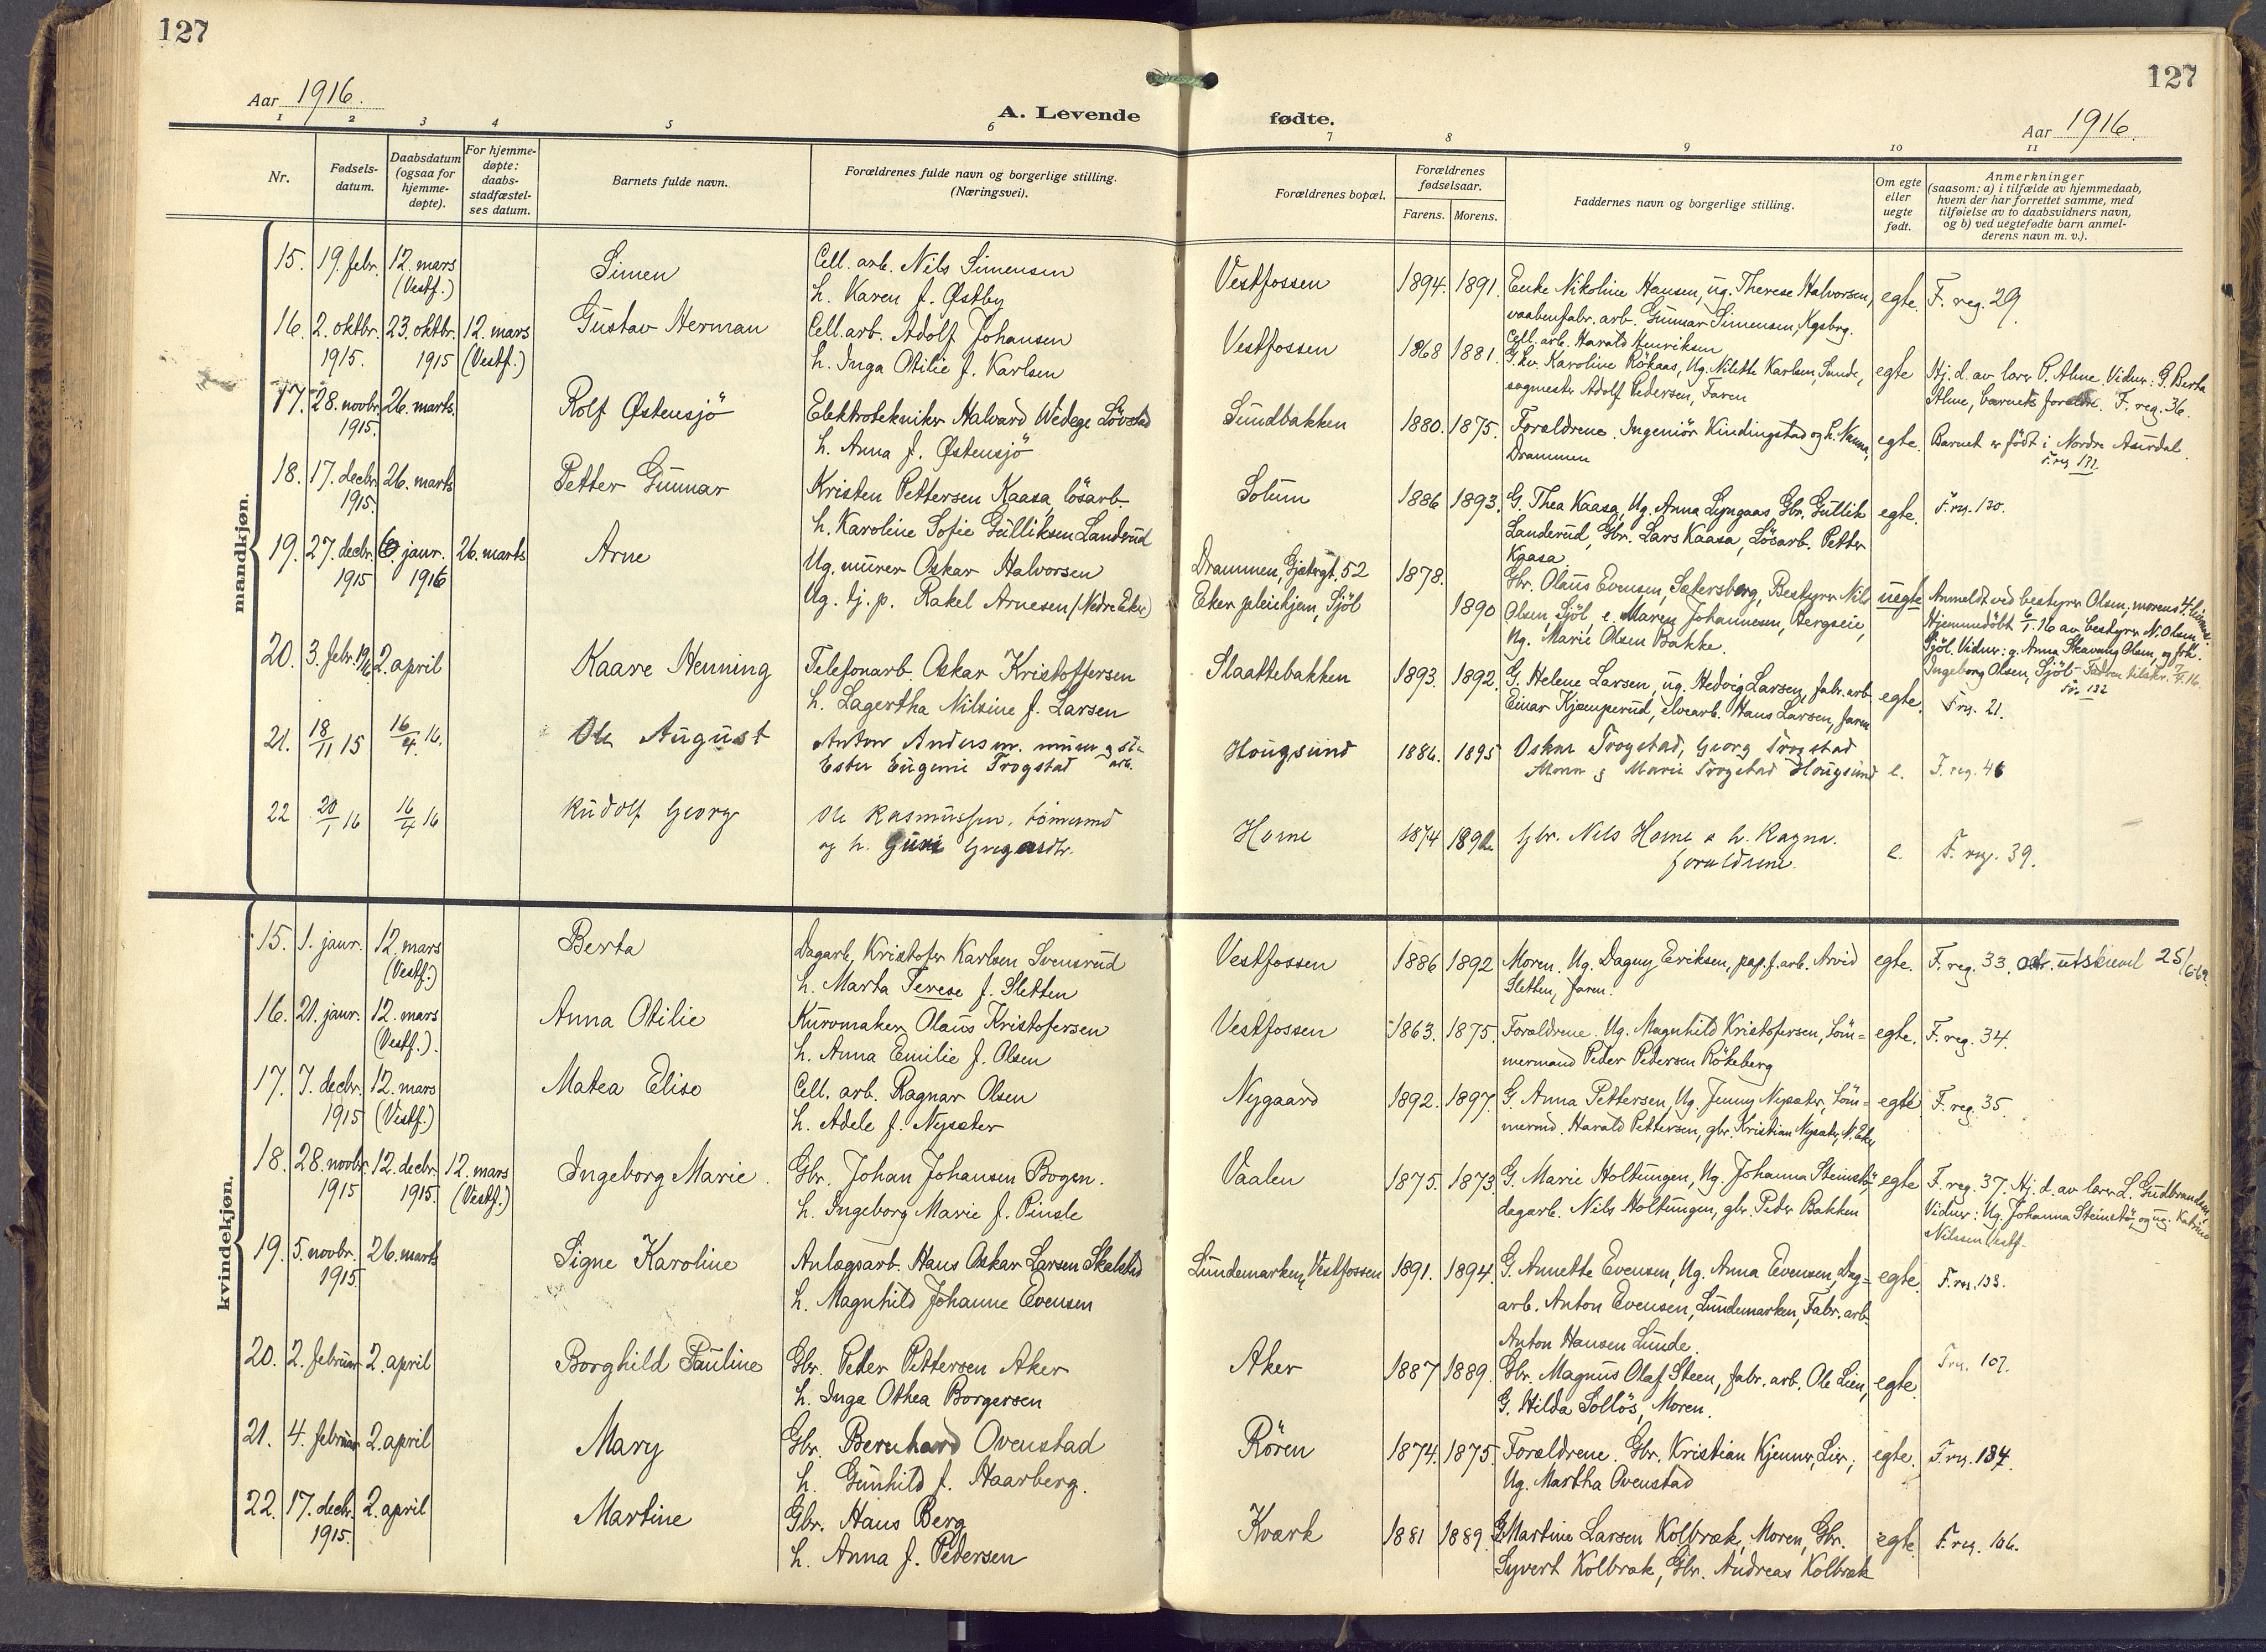 127
127
Aar 1916.
A. Levende
fødte.
Aar 1916.
1 2 3 4 5 6 7 8 9 10 11
Nr.
Fødsels-
datum.
Daabsdatum
(ogsaa for
hjemme-
døpte).
For hjemme-
døpte:
daabs-
stadfæstel-
ses datum.
Barnets fulde navn.
Forældrenes fulde navn og borgerlige stilling.
(Næringsvei).
Forældrenes bopæl.
Forældrenes
fødselsaar.
Farens. Morens.
Faddernes navn og borgerlige stilling.
Om egte
eller
uegte
født.
Anmerkninger
(saasom: a) i tilfælde av hjemmedaab,
hvem der har forrettet samme, med
tilføielse av to daabsvidners navn,
og b) ved uegtefødte barn anmel-
derens navn m. v.).
mandkjøn.
15. 19. febr. 12. mars Simen Cell. arb. Nils Simensen Vestfossen 1894. 1891. Enke Nikoline Hansen, ug. Therese Halvorsen, egte. F. reg. 29.
(Vestf.) h. Karen f. Østby vaabenfabr. arb. Gunnar Simensen, Kgsbrg.
16. 2. oktbr. 23. oktbr. 12. mars Gustav Herman Cell. arb. Adolf Johansen Vestfossen 1868 1881. Cell. arb. Harald Henriksen
1915. 1915 (Vestf.) h. Inga Otilie f. Karlsen G. kv. Karoline Rökaas, Ug. Nilette Karlsen, Sunde, egte Hj. d. av lærer P. Alme. Vidner: G. Berta
sagmester Adolf Pedersen, Faren Alme, barnets foreldre. F. reg. 36.
17. 28. novbr. 26. marts. Rolf Østensjö Elektrotekniker Halvard Wedege Lövstad Sundbakken 1880. 1875. Forældrene. Ingeniör Kindingstad og h. Nanna, egte. Barnet er födt i Nordre Aurdal.
1915. h. Anna f. Østensjö Drammen F. reg. 131.
18. 17. decbr. 26. marts Petter Gunnar Kristen Pettersen Kaasa, lösarb. Solum 1886 1893. G. Thea Kaasa, Ug. Anna Lyngaas, Gbr. Gullik egte. F. reg. 130.
1915. h. Karoline Sofie Gulliksen Landerud Landerud, Gbr. Lars Kaasa, Lösarb. Petter
Kaasa.
19. 27. decbr. 6. janur. 26. marts Arne Ug. murer Oskar Halvorsen Drammen, Gjetergt. 52 1878. Gbr. Olaus Evensen, Sætersberg, Bestyrer Nils uegte Anmeldt ved bestyrer Olsen, morens
1915 1916 Ug. tj. p. Rakel Arnesen (Nedre Eker) Eker pleiehjem, Sjöl 1890 Olsen, Sjöl, e. Maren Johannesen, Bergseie, Hjemmedöbt 6/1.16 av bestyrer N. Olsen,
Ug. Marie Olsen Bakke. Sjöl. Vidner: g. Anna Skavung Olsen, og frk.
Ingeborg Olsen, Sjöl
F. reg. 132
20. 3. febr. 1916 2. april Kaare Henning Telefonarb. Oskar Kristoffersen Slaattebakken 1893. 1892. G. Helene Larsen, ug. Hedvig Larsen, fabr. arb. egte. F. reg. 21.
h. Lagertha Nilsine f. Larsen Einar Kjæmperud, elvearb. Hans Larsen, faren
21. 18/11 15 16/4 16. Ole August Anton Andersen. murer og st. arb. Hougsund 1886. 1895 Oskar Trogstad, Georg Trogstad
Ester Eugenie Trogstad Moren & Marie Trogstad Hougsund e. F. reg. 46
22 20/1 16 16/4 16 Rudolf Georg Ole Rasmussen, tömmermd Horne 1874 Gbr. Nils Horne & h. Ragna. e. F. reg. 39.
og h. foreldrene.
kvindekjøn.
15. 1. janur. 12. mars Berta Dagarb. Kristofer Karlsen Svensrud Vestfossen 1886 1892 Moren. Ug. Dagny Eriksen, pap. f. arb. Arvid egte. F. reg. 33. utskrevet 25/6-69.
(Vestf.) h. Marta Terese f. Sletten Sletten, faren.
16. 21. janur. 12. mars Anna Otilie Kurvmaker Olaus Kristofersen Vestfossen 1863. 1875. Forældrene. Ug. Magnhild Kristofersen, töm= egte. F. reg. 34.
(Vestf.). h. Anna Emilie f. Olsen mermand Peder Pedersen Rökeberg
17. 7. decbr. 12. mars Matea Elise Cell. arb. Ragnar Olsen Nygaard 1892. 1897. G. Anna Pettersen, Ug. Jenny Nysæter, töm= egte F. reg. 35.
1915 (Vestf.) h. Adele f. Nysæter mermd. Harald Pettersen, gbr. Kristian Nysæter, N. Eker
18. 28. novbr. 12. decbr. 12. mars Ingeborg Marie Gbr. Johan Johansen Bogen. Vaalen 1875. 1873. G. Marie Holtungen, Ug. Johanna Steinstö, egte F. reg. 37. Hj. d. av lærer L. Gudbrandsen,
1915 1915. (Vestf.) h. Ingeborg Marie f. Pinsle dagarb. Nils Holtungen, gbr. Peder Bakken Vidner: Ug. Johanna Steinstö, og ug. Katrine
Nilssen Vestf.
19. 5. novbr. 26. marts Signe Karoline Anlægsarb. Hans Oskar Larsen Skalstad Lundemarken, Vestfossen 1891. 1894. G. Annette Evensen, Ug. Anna Evensen, Dag= egte. F. reg. 133.
1915. h. Magnhild Johanne Evensen arb. Anton Evensen, Lundemarken, Fabr. arb.
Anton Hansen Lunde.
20. 2. februar 2. april Borghild Pauline Gbr. Peder Pettersen Aker Aker 1887 1889. Gbr. Magnus Olaf Steen, fabr. arb. Ole Lien, egte. F. reg. 107.
h. Inga Othea Borgersen G. Hilda Sollös, Moren.
21. 4. februar 2. april Mary Gbr. Bernhard Ovenstad Rören 1874. 1875. Forældrene. Gbr. Kristian Kjenner, Lier; egte. F. reg. 134.
h. Gunhild f. Haarberg. Ug. Martha Ovenstad
22. 17. decbr. 2. april Martine Gbr. Hans Berg Kværk 1881 1889. G. Martine Larsen Kolbræk, Moren, Gbr. egte. F. reg. 106.
1915. h. Anna f. Pedersen Syvert Kolbræk, Gbr. Andreas Kolbræk